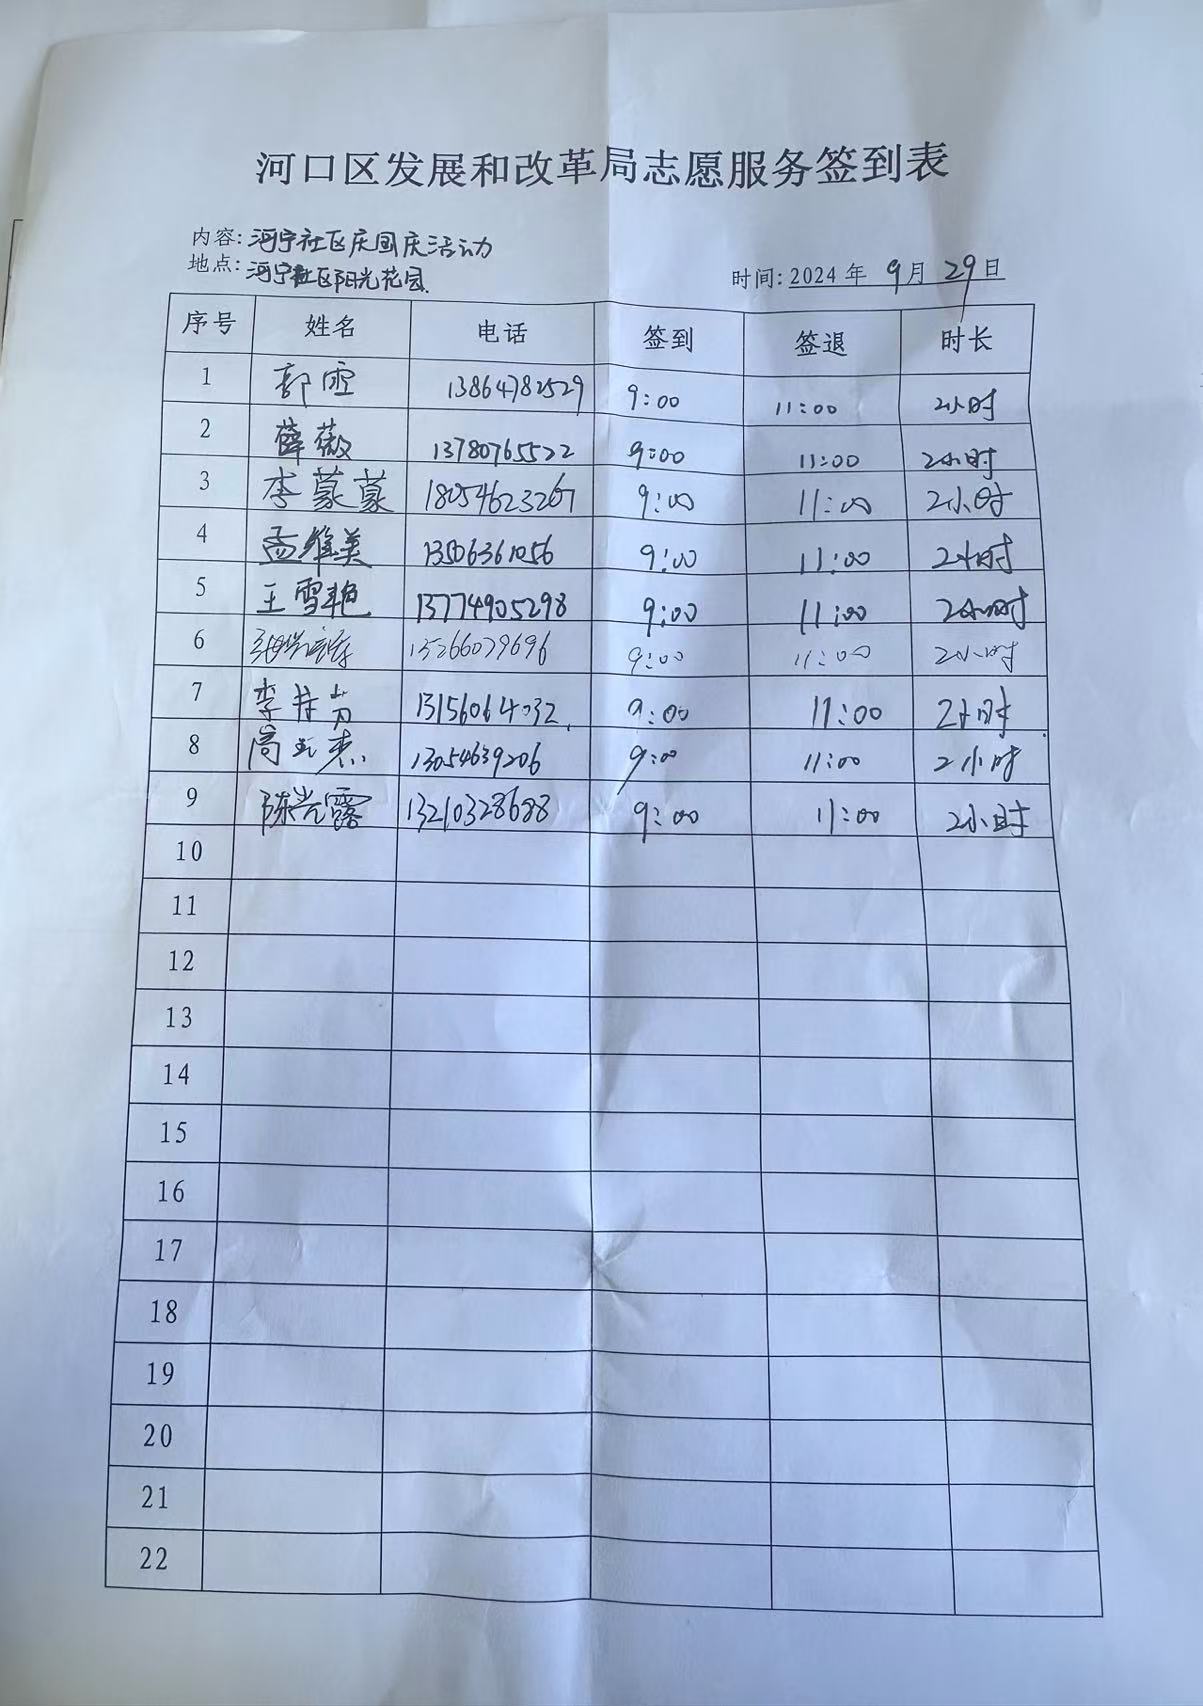 河口区发展和改革局志愿服务签到表
内容: 河宁社区庆国庆活动
地点: 河宁社区阳光花园.
时间: 2024 年 9月 29日
序号 姓名 电话 签到 签退 时长
1 郭雪 13864782529 9:00 11:00 2小时
2 薛薇 13780765522 9:00 11:00 2小时
3 李蒙蒙 18054623267 9:00 11:00 2小时
4 孟维美 13506361056 9:00 11:00 2小时
5 王雪艳 13774905298 9:00 11:00 2小时
6 15266079696 9:00 11:00 2小时
7 李梓芳 13156064032 9:00 11:00 2小时
8 13054639206 9:00 11:00 2小时
9 陈光露 13210328688 9:00 11:00 2小时
10
11
12
13
14
15
16
17
18
19
20
21
22